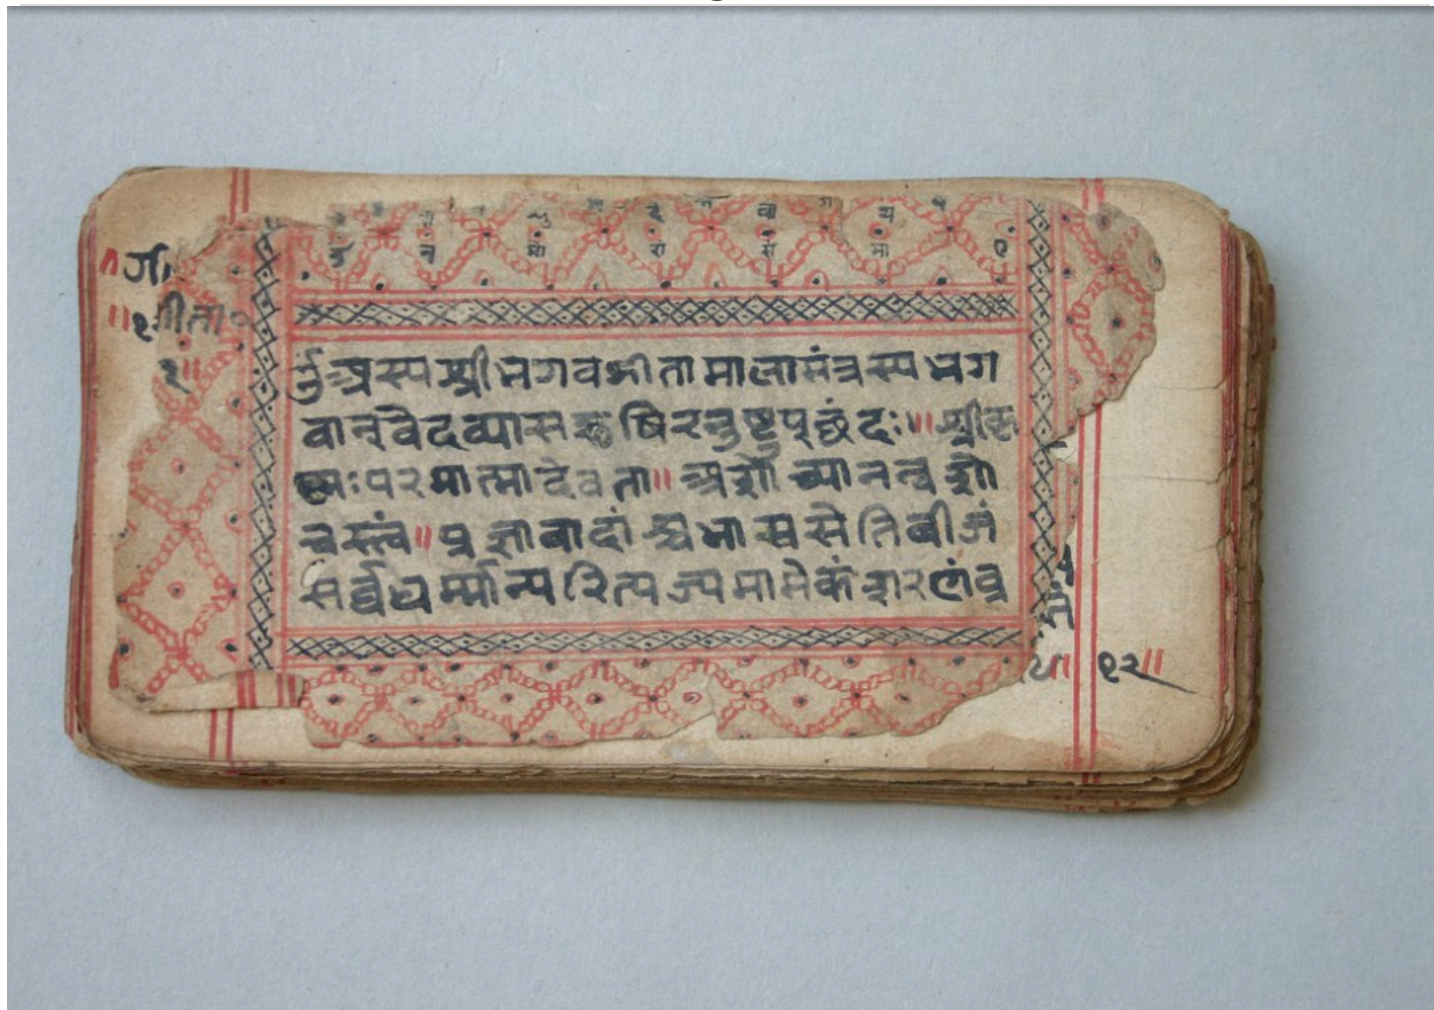 गीता॰
१॥
ॐअस्य श्रीभगवद्गीतामालामंत्रस्य भग
वान्वेदव्यासऋषिरनुष्टुप्छंदः॥श्रीकृ
ष्णःपरमात्मादेवता॥अशोच्यानन्वशो
चस्त्वं॥प्रज्ञावादांश्चभाषसेतिबीजं
सर्व्वधर्म्मान्परित्यज्यमामेकंशरणंव्र
१२॥